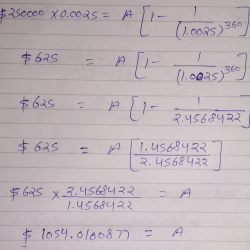 $250000 × 0.0025 = A [1 - 1/(1.0025)^360]
$625 = A [1 - 1/(1.0025)^360]
$625 = A [1 - 1/2.4568422]
$625 = A [1.4568422/2.4568422]
$625 × 2.4568422/1.4568422 = A
$1054.0100877 = A